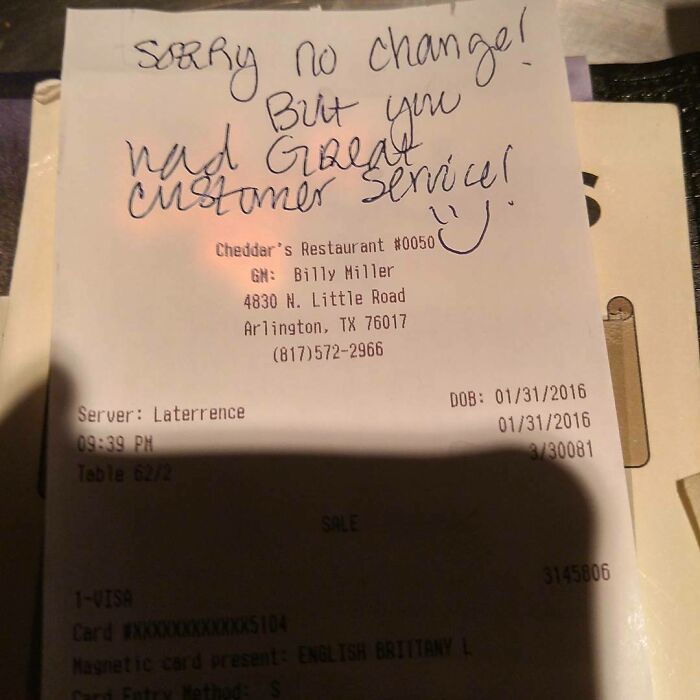 SORRY no change!
But you
had Great
customer Service!
Cheddar's Restaurant #0050
GM: Billy Miller
4830 N. Little Road
Arlington, TX 76017
(817)572-2966
DOB: 01/31/2016
Server: Laterrence
01/31/2016
09:39 PM
3/30081
Table 62/2
SALE
3145806
1-VISA
Card #XXXXXXXXXXXX5104
Magnetic card present: ENGLISH BRITTANY L
Card Entry Method: S
S